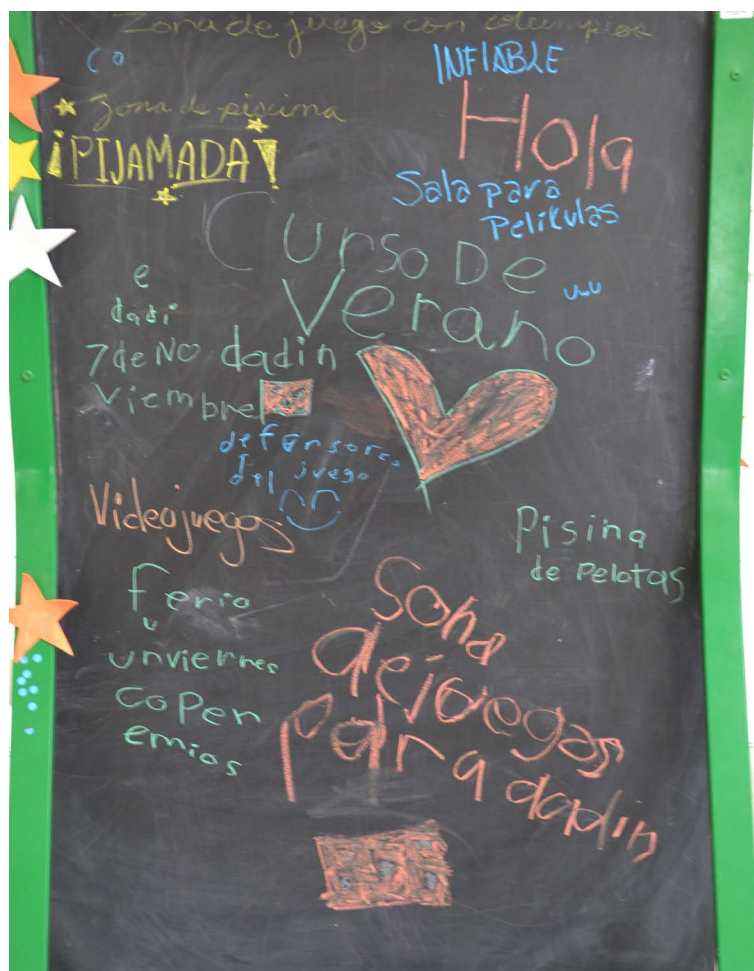 Zona de juego con columpios
co
INFlABLE
Zona de piscina
Hola
¡PIJAMADA!
Sala para
Pelikulas
Curso De
Verano
uwu
e
dadi
7 de No dadin
viembre
defensores
del juego
Videojuegos
Pisina
de pelotas
feria
u
unviernes
coPen
emios
Sona
dejuegas
para dadin